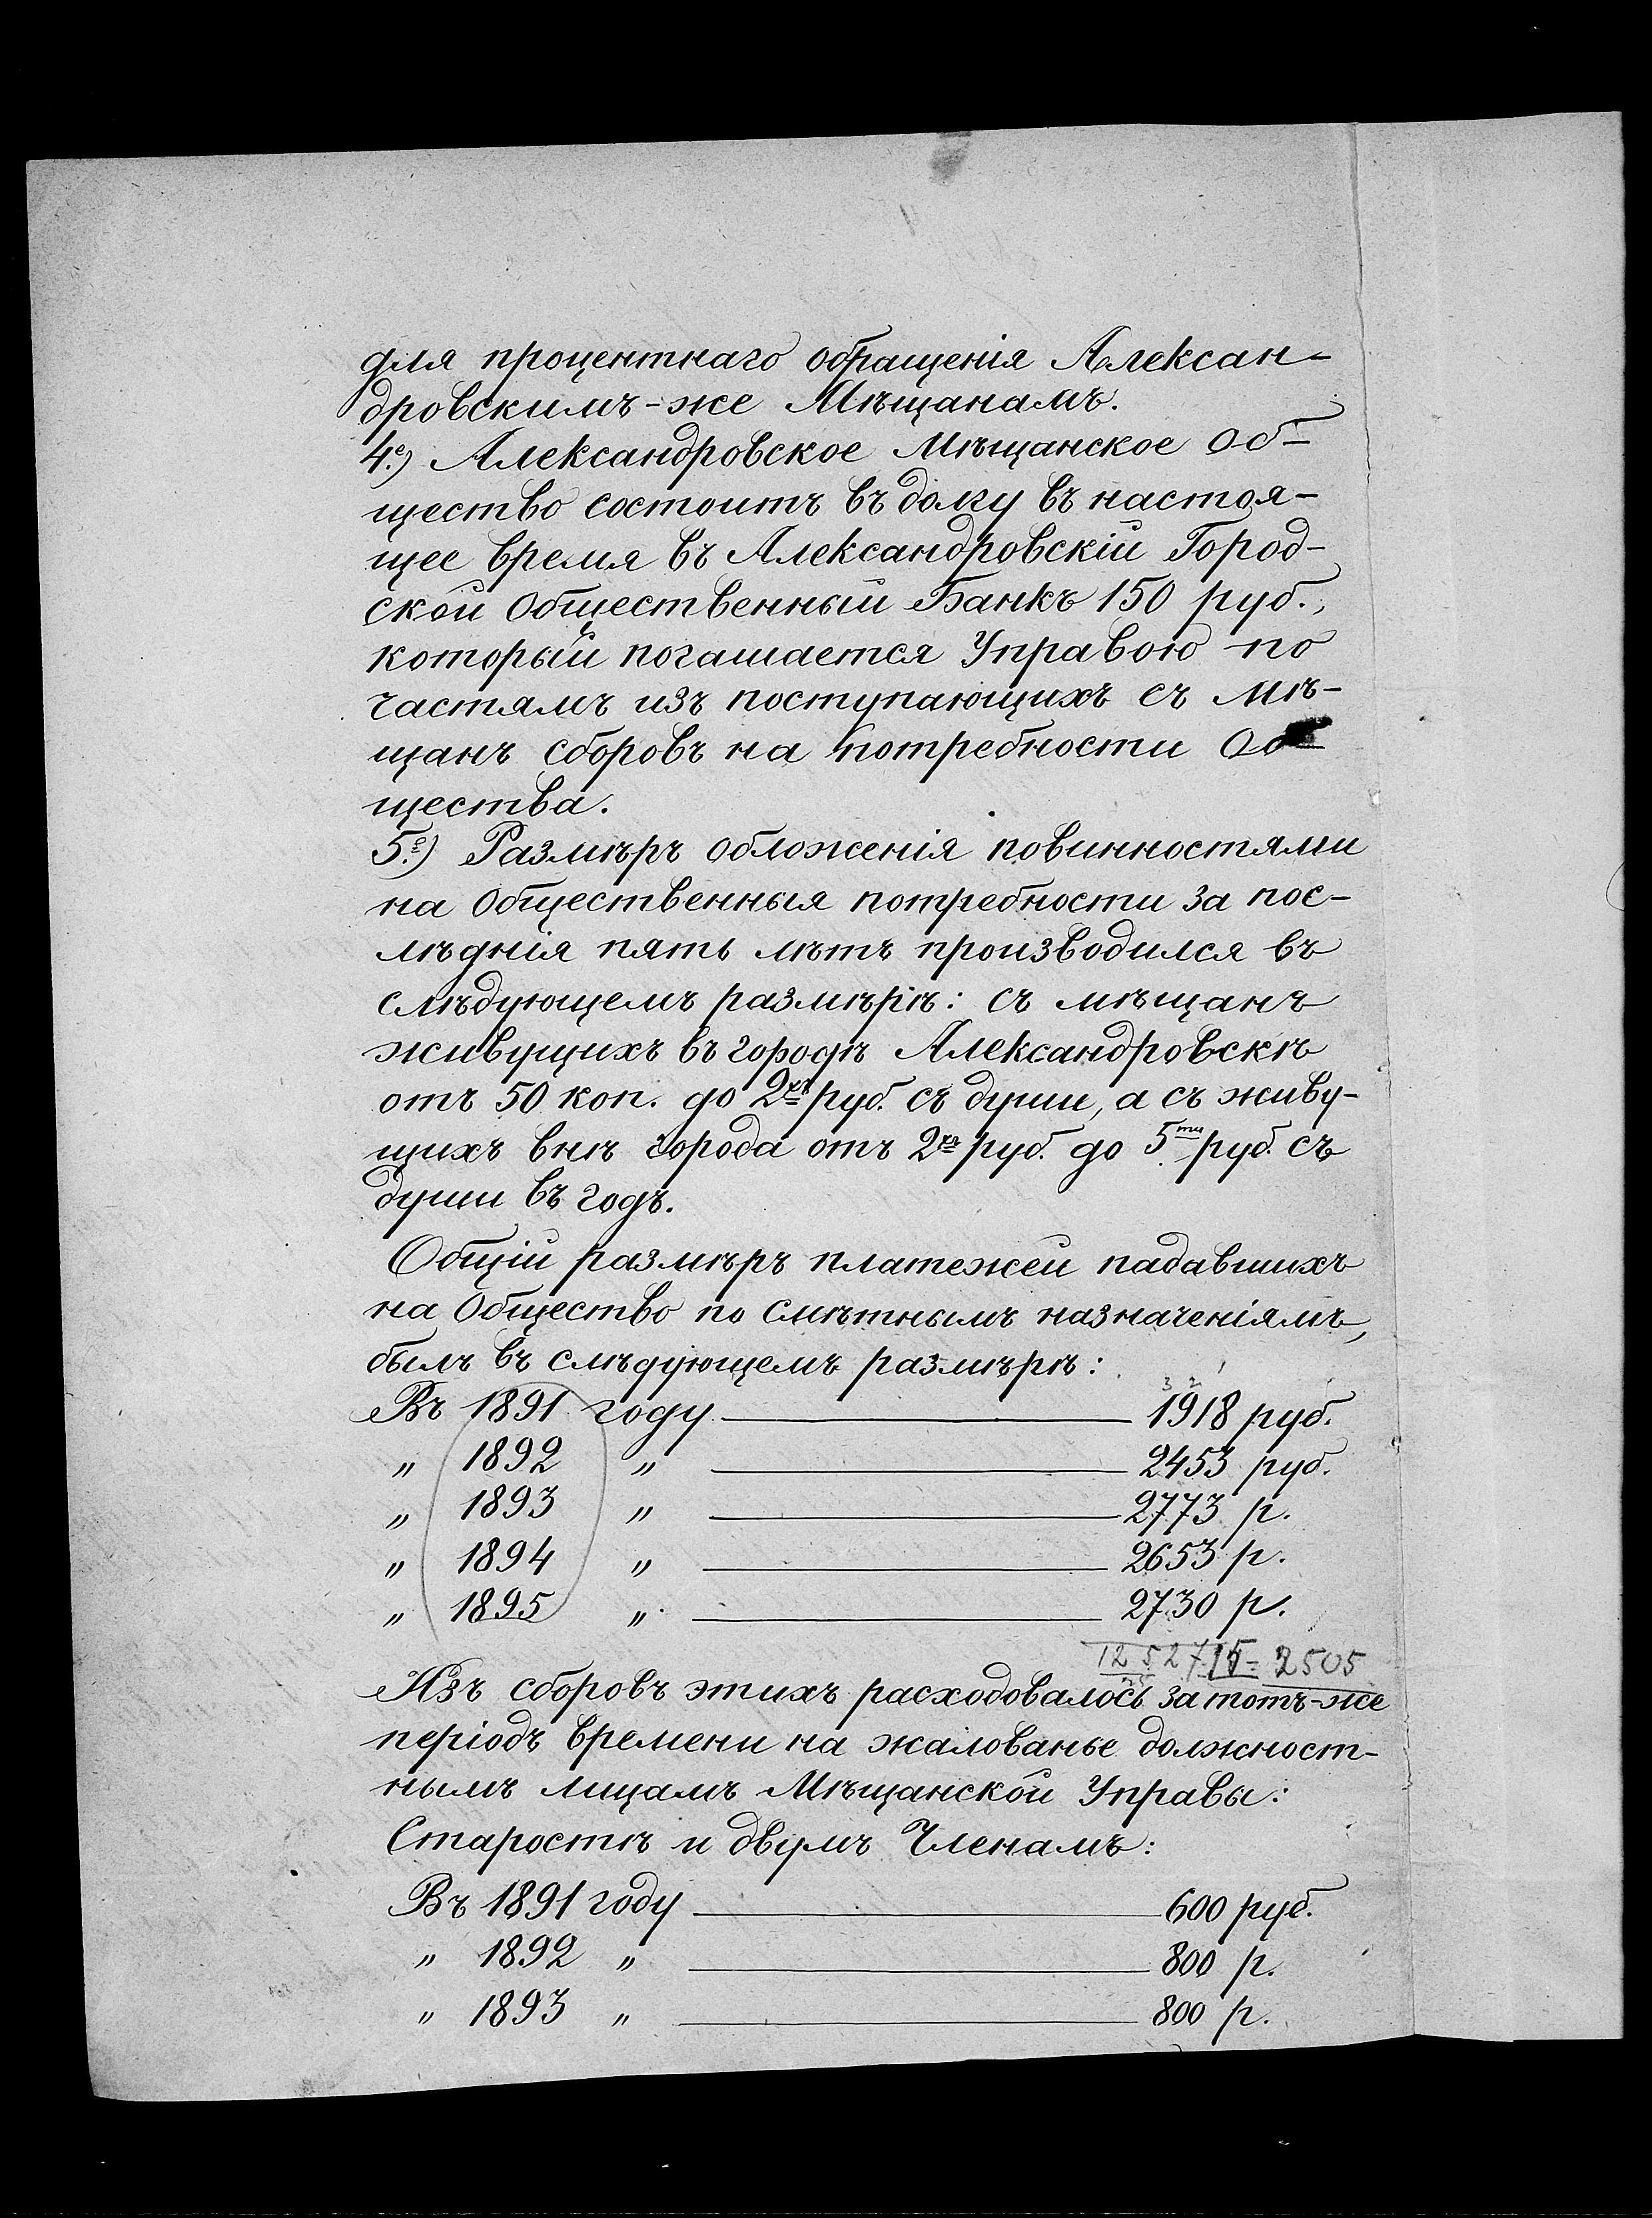 для процентнаго обращенія Алексан-
дровскимъ-же Мѣщанамъ.
4е.) Александровское Мѣщанское Об-
щество состоитъ въ долгу въ настоя-
щее время въ Александровскій Город-
ской Общественный Банкъ 150 руб.,
который погашается Управою по
частямъ изъ поступающихъ съ Мѣ-
щанъ сборовъ на потребности Об-
щества.
5е.) Размѣръ обложенія повинностями
на Общественныя потребности за пос-
лѣднія пять лѣтъ производился въ
слѣдующемъ размѣрѣ: съ мѣщанъ
живущихъ въ городѣ Александровскѣ
отъ 50 коп. до 2хъ руб. съ души, а съ живу-
щихъ внѣ города отъ 2хъ руб. до 5ти руб. съ
души въ годъ.
Общій размѣръ платежей падавшихъ
на Общество по смѣтнымъ назначеніямъ,
былъ въ слѣдующемъ размѣрѣ:
3 2
Въ 1891 году 1918 руб.
„ 1892 „ 2453 руб.
„ 1893 „ 2773 р.
„ 1894 „ 2653 р.
„ 1895 „ 2730 р.
12527 = 2505
Изъ сборовъ этихъ расходовалось за тотъ-же
періодъ времени на жалованье должност-
нымъ лицамъ Мѣщанской Управы:
Старостѣ и двумъ Членамъ:
Въ 1891 году 600 руб.
„ 1892 „ 800 р.
„ 1893 „ 800 р.